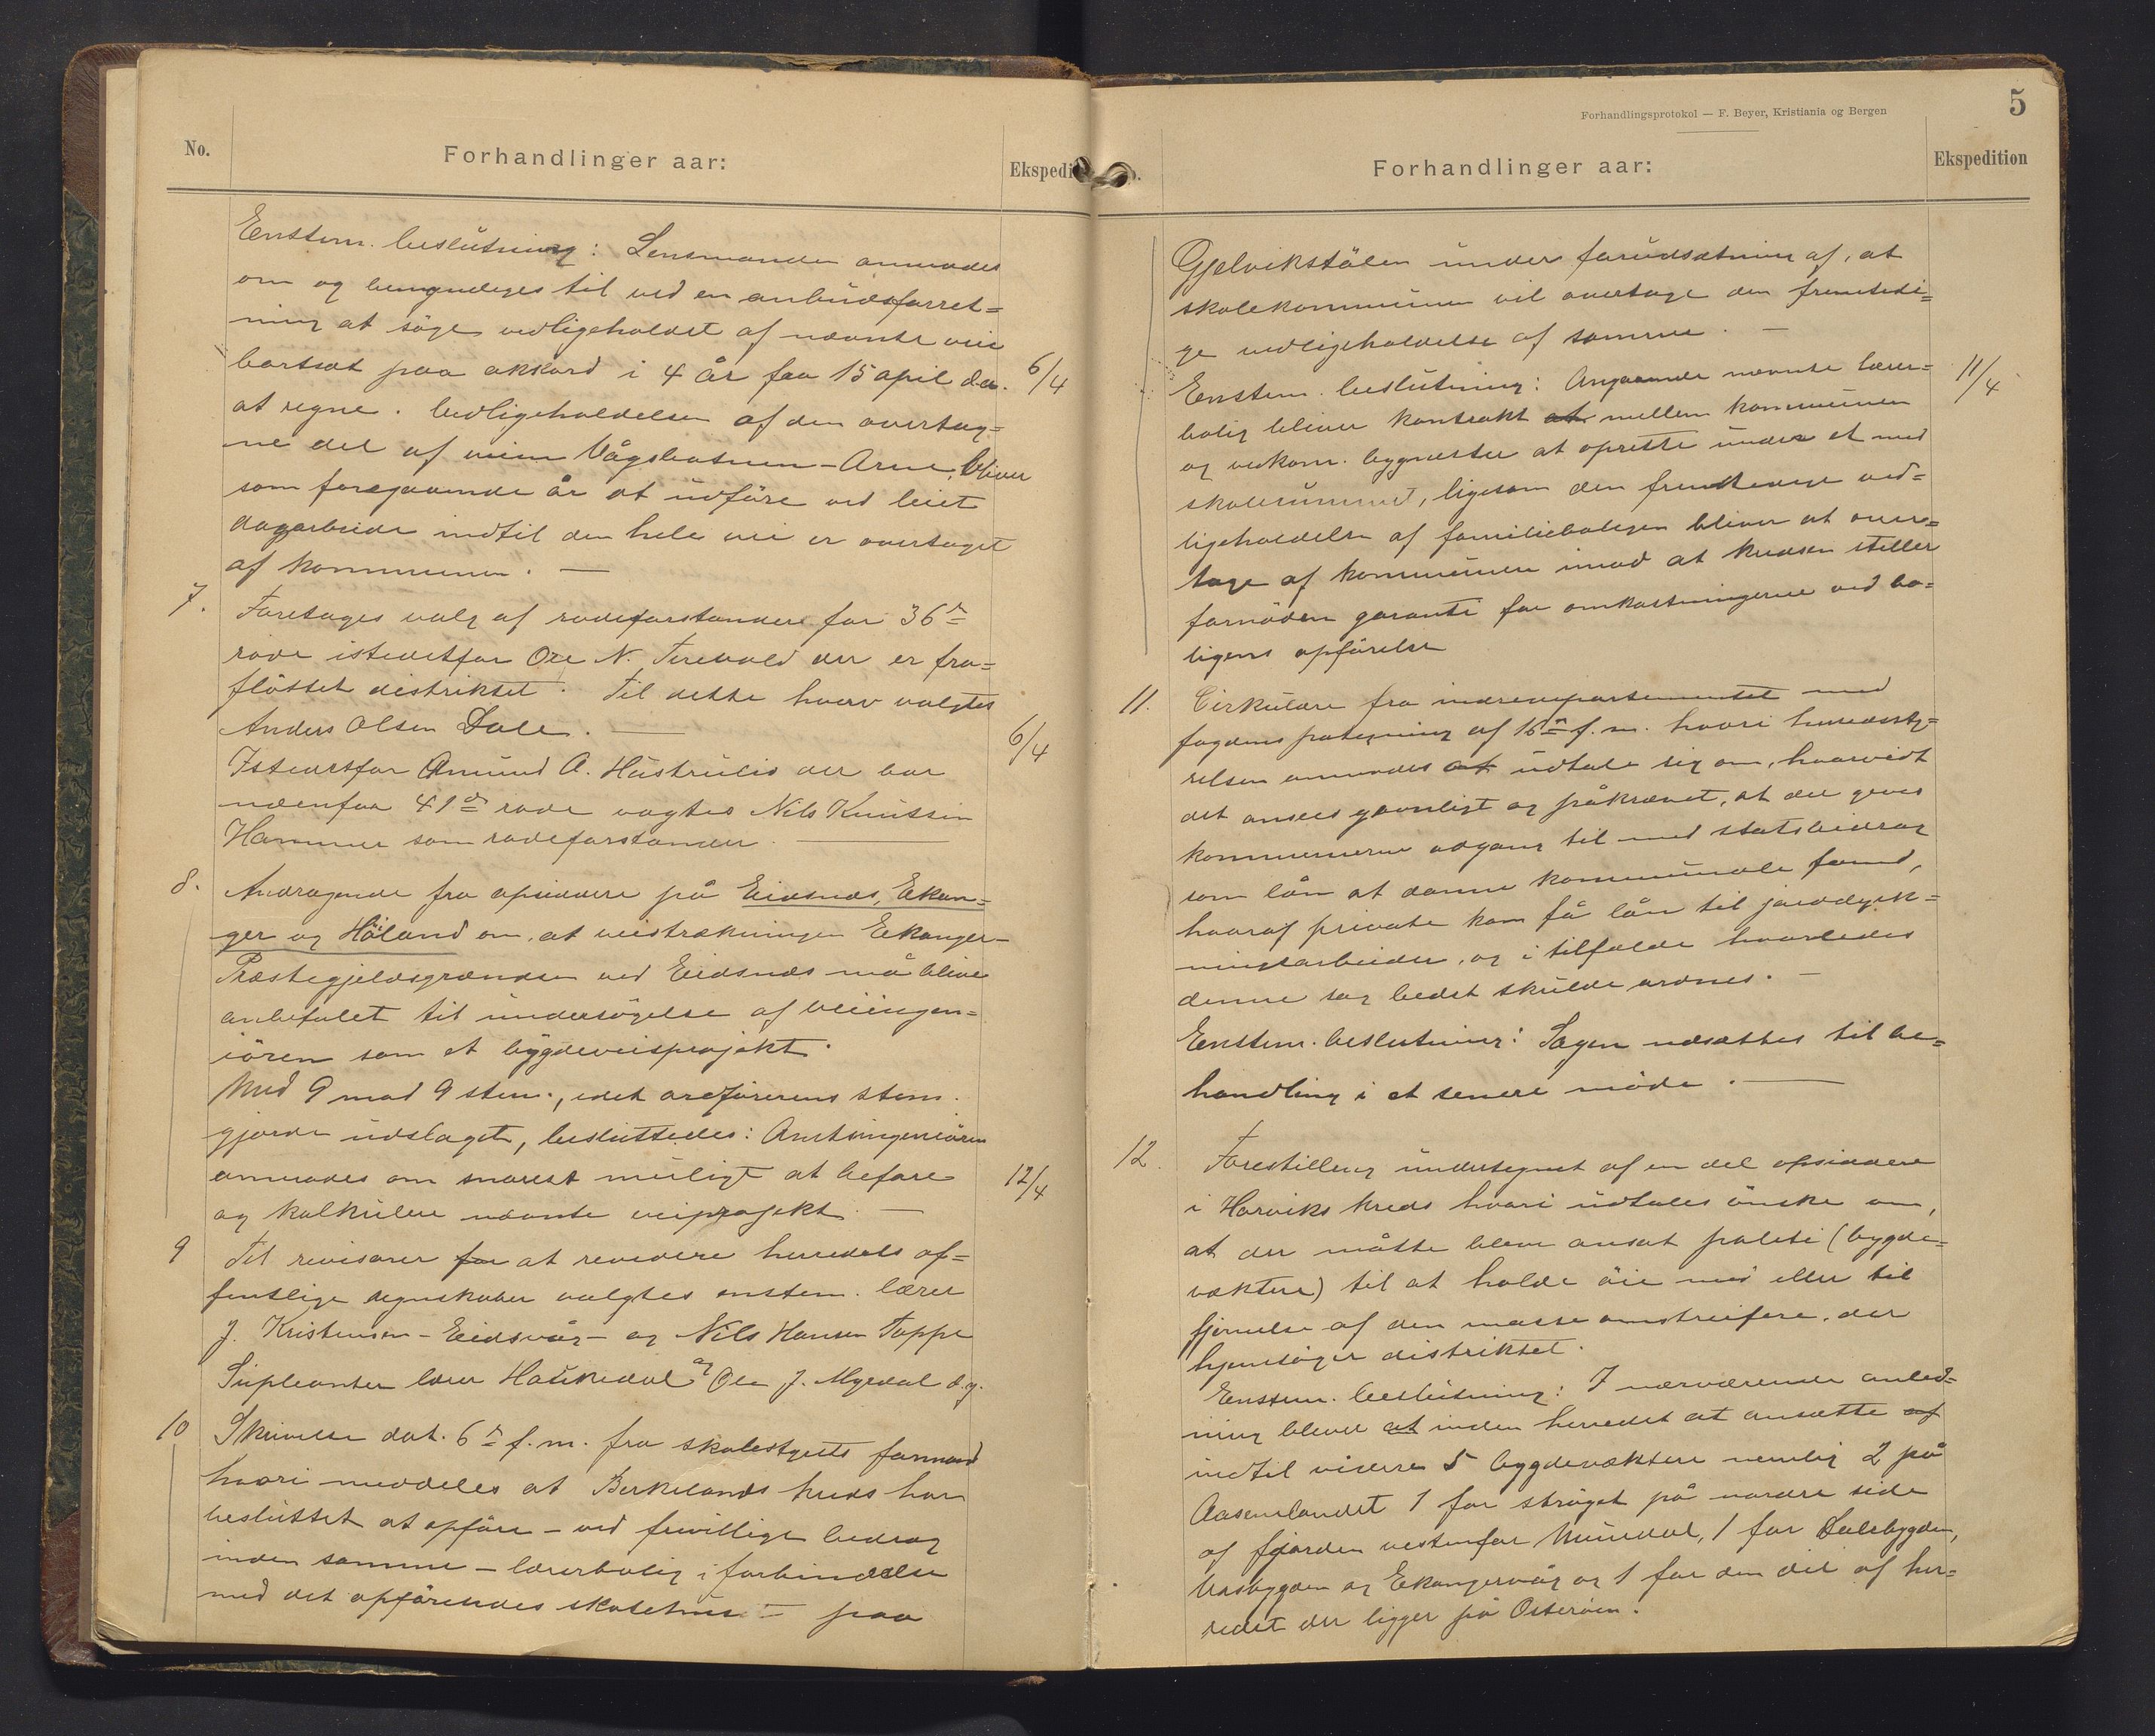 No.
Forhandlinger aar:
Ekspedi
Enstem. beslutning: Lensmanden anmodes
om og bemyndiges til ved en anbudsforret=
ning at söge vedligeholdet af nævnte vei
bortsat paa akkord i 4 år fra 15 april d.a.
6/4
at regne. Vedligeholdelsen af den overtag=
ne del af veien Vågsbotnen-Arne, bliver
som foregaaende år at udföre ved leiet
dagarbeide indtil den hele vei er overtaget
af kommunen. —
7.
Foretages valg af rodeforstander for 36te
rode istedetfor Ole N. Terevold der er fra=
flöttet distriktet. Til dette hverv valgtes
Anders Olsen Dale. —
6/4
Istedetfor Amund A. Hustrulid der bor
udenfor 41de rode valgtes Nils Knutsen
Hammer som rodeforstander. —
8.
Andragende fra opsiddere på Eidsnes, Eikan=
ger og Höland om, at veistrækningen Eekanger-
Præstegjeldsgrændsen ved Eidsnes må blive
anbefalet til undersögelse af veiingen=
iören som et bygdeveisprojekt.
Med 9 mod 9 stem., idet ordförerens stem.
gjorde udslaget, besluttedes: Amtsingeniören
anmodes om snarest muligt at befare
12/4
og kalkulere nævnte veiprojekt. —
9
Til revisorer for at revidere herredets of=
fentlige regnskaber valgtes enstem. lærer
J. Kristensen - Eidsvåg - og Nils Hansen Toppe
Supleanter lærer Haukedal og Ole J. Myrdal d.y.
10
Skrivelse dat. 6te f.m. fra skolestyrets formand
hvori meddeles at Birkelands kreds har
besluttet at opföre - ved frivillige bidrag
inden samme - lærerbolig i forbindelse
med det opförendes skolehus - paa
Forhandlingsprotokol — F. Beyer, Kristiania og Bergen
5
Forhandlinger aar:
Ekspedition
Gjelvikstölen under forudsætning af, at
skolekommunen vil overtage den fremtidi=
ge vedligeholdelse af samme. —
Enstem. beslutning: Angaaende nævnte lærer=
11/4
bolig bliver kontrakt at mellem kommunen
og vedkom. bygmester at oprette under et med
skolerummet, ligesom den fremtidige ved=
ligeholdelse af familieboligen bliver at over=
tage af kommunen imod at kredsen stiller
fornöden garanti for omkostningerne ved bo=
ligens opförelse
11.
Cirkulære fra indredepartementet med
fogdens påtegning af 16de f.m. hvori herredssty=
relsen anmodes at udtale sig om, hvorvidt
det ansees gavnligt og påkrævet, at der gives
kommunerne adgang til med statsbidrag
som lån at danne kommunale fond,
hvoraf private kan få lån til jorddyrk=
ningsarbeider, og i tilfælde hvorledes
denne sag bedst skulde ordnes. —
Enstem. beslutning: Sagen udsættes til be=
handling i et senere möde. —
12.
Forestilling undertegnet af en del opsiddere
i Horviks kreds hvori udtales önske om,
at der måtte blive ansat politi (bygde=
vægtere) til at holde öie med eller til
fjernelse af den masse omstreifere, der
hjemsöger distriktet.
Enstem. beslutning: I nærværende anled=
ning bliver at inden herredet at ansætte af
indtil videre 5 bygdevæktere nemlig 2 på
Aasenelandet 1 for ströget på nordre side
af fjorden vestenfor Mundal, 1 for Dalebygden,
Aasbygden og Eekangervåg og 1 for den del af her=
redet der ligger på Osteröen.